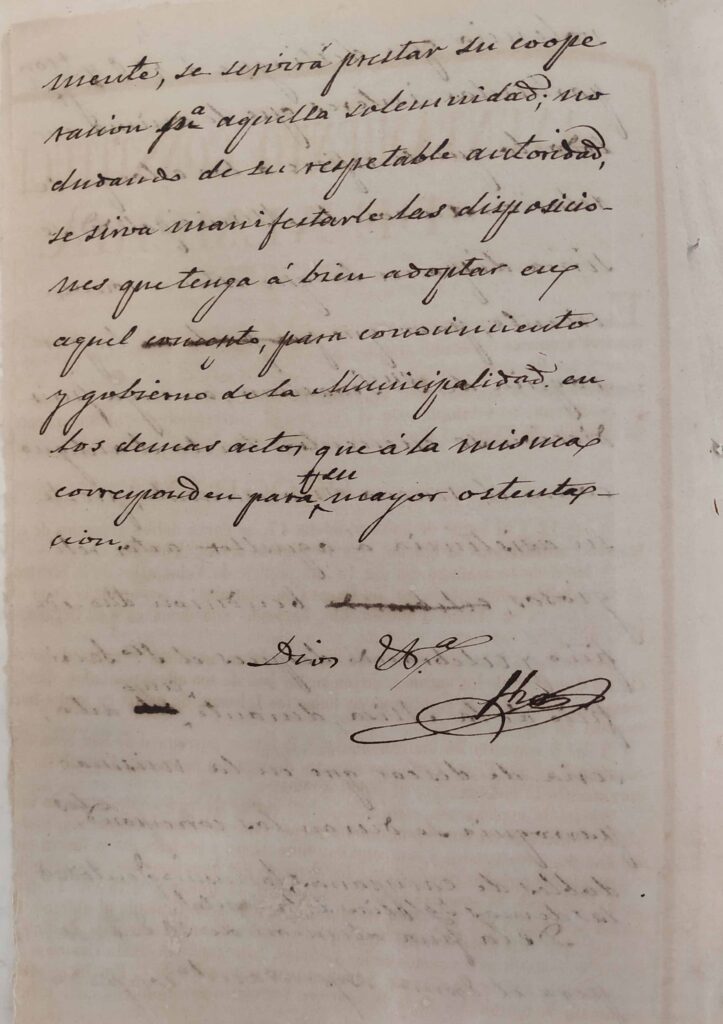 mente, se servirá prestar su coope
racion pa aquella solemnidad; no
dudando de su respetable autoridad,
se sirva manifestarle las disposicio-
nes que tenga á bien adoptar en
aquel concepto, para conocimiento
y gobierno de la Municipalidad. en
los demas actos que á la misma
su
corresponden para mayor ostenta-
cion.
Dios